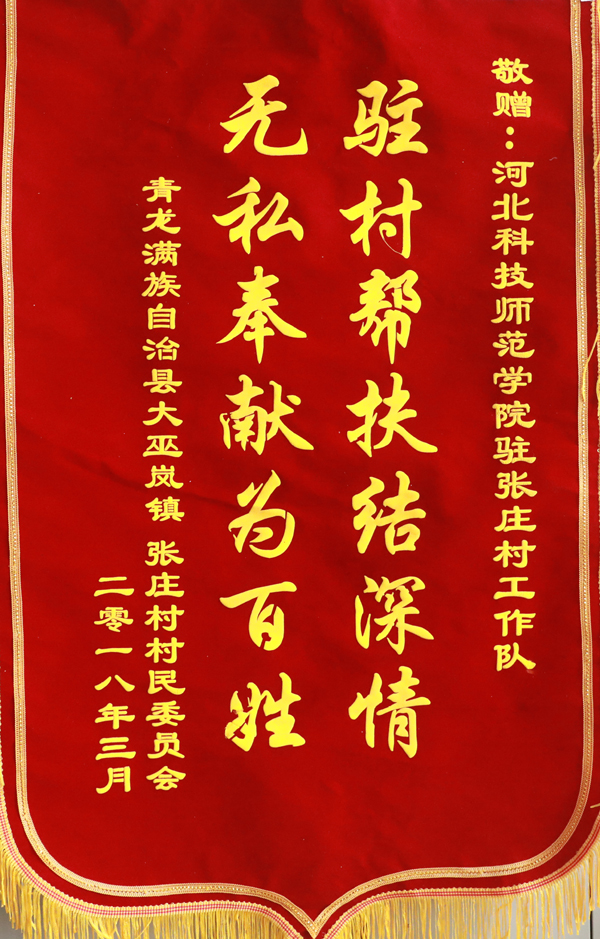 敬赠：河北科技师范学院驻张庄村工作队
驻村帮扶结深情
无私奉献为百姓
青龙满族自治县大巫岚镇 张庄村村民委员会
二零一八年三月